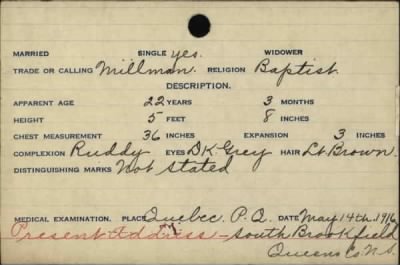 MARRIED SINGLE yes. WIDOWER
TRADE OR CALLING Millman. RELIGION Baptist.
DESCRIPTION.
APPARENT AGE 22 YEARS 3 MONTHS
HEIGHT 5 FEET 8 INCHES
CHEST MEASUREMENT 36 INCHES EXPANSION 3 INCHES
COMPLEXION Ruddy EYES DK Grey HAIR Lt Brown
DISTINGUISHING MARKS Not stated
MEDICAL EXAMINATION. PLACE Quebec P.Q. DATE May 14th 1916
Present Address - South Brookfield
Queens Co N.S.